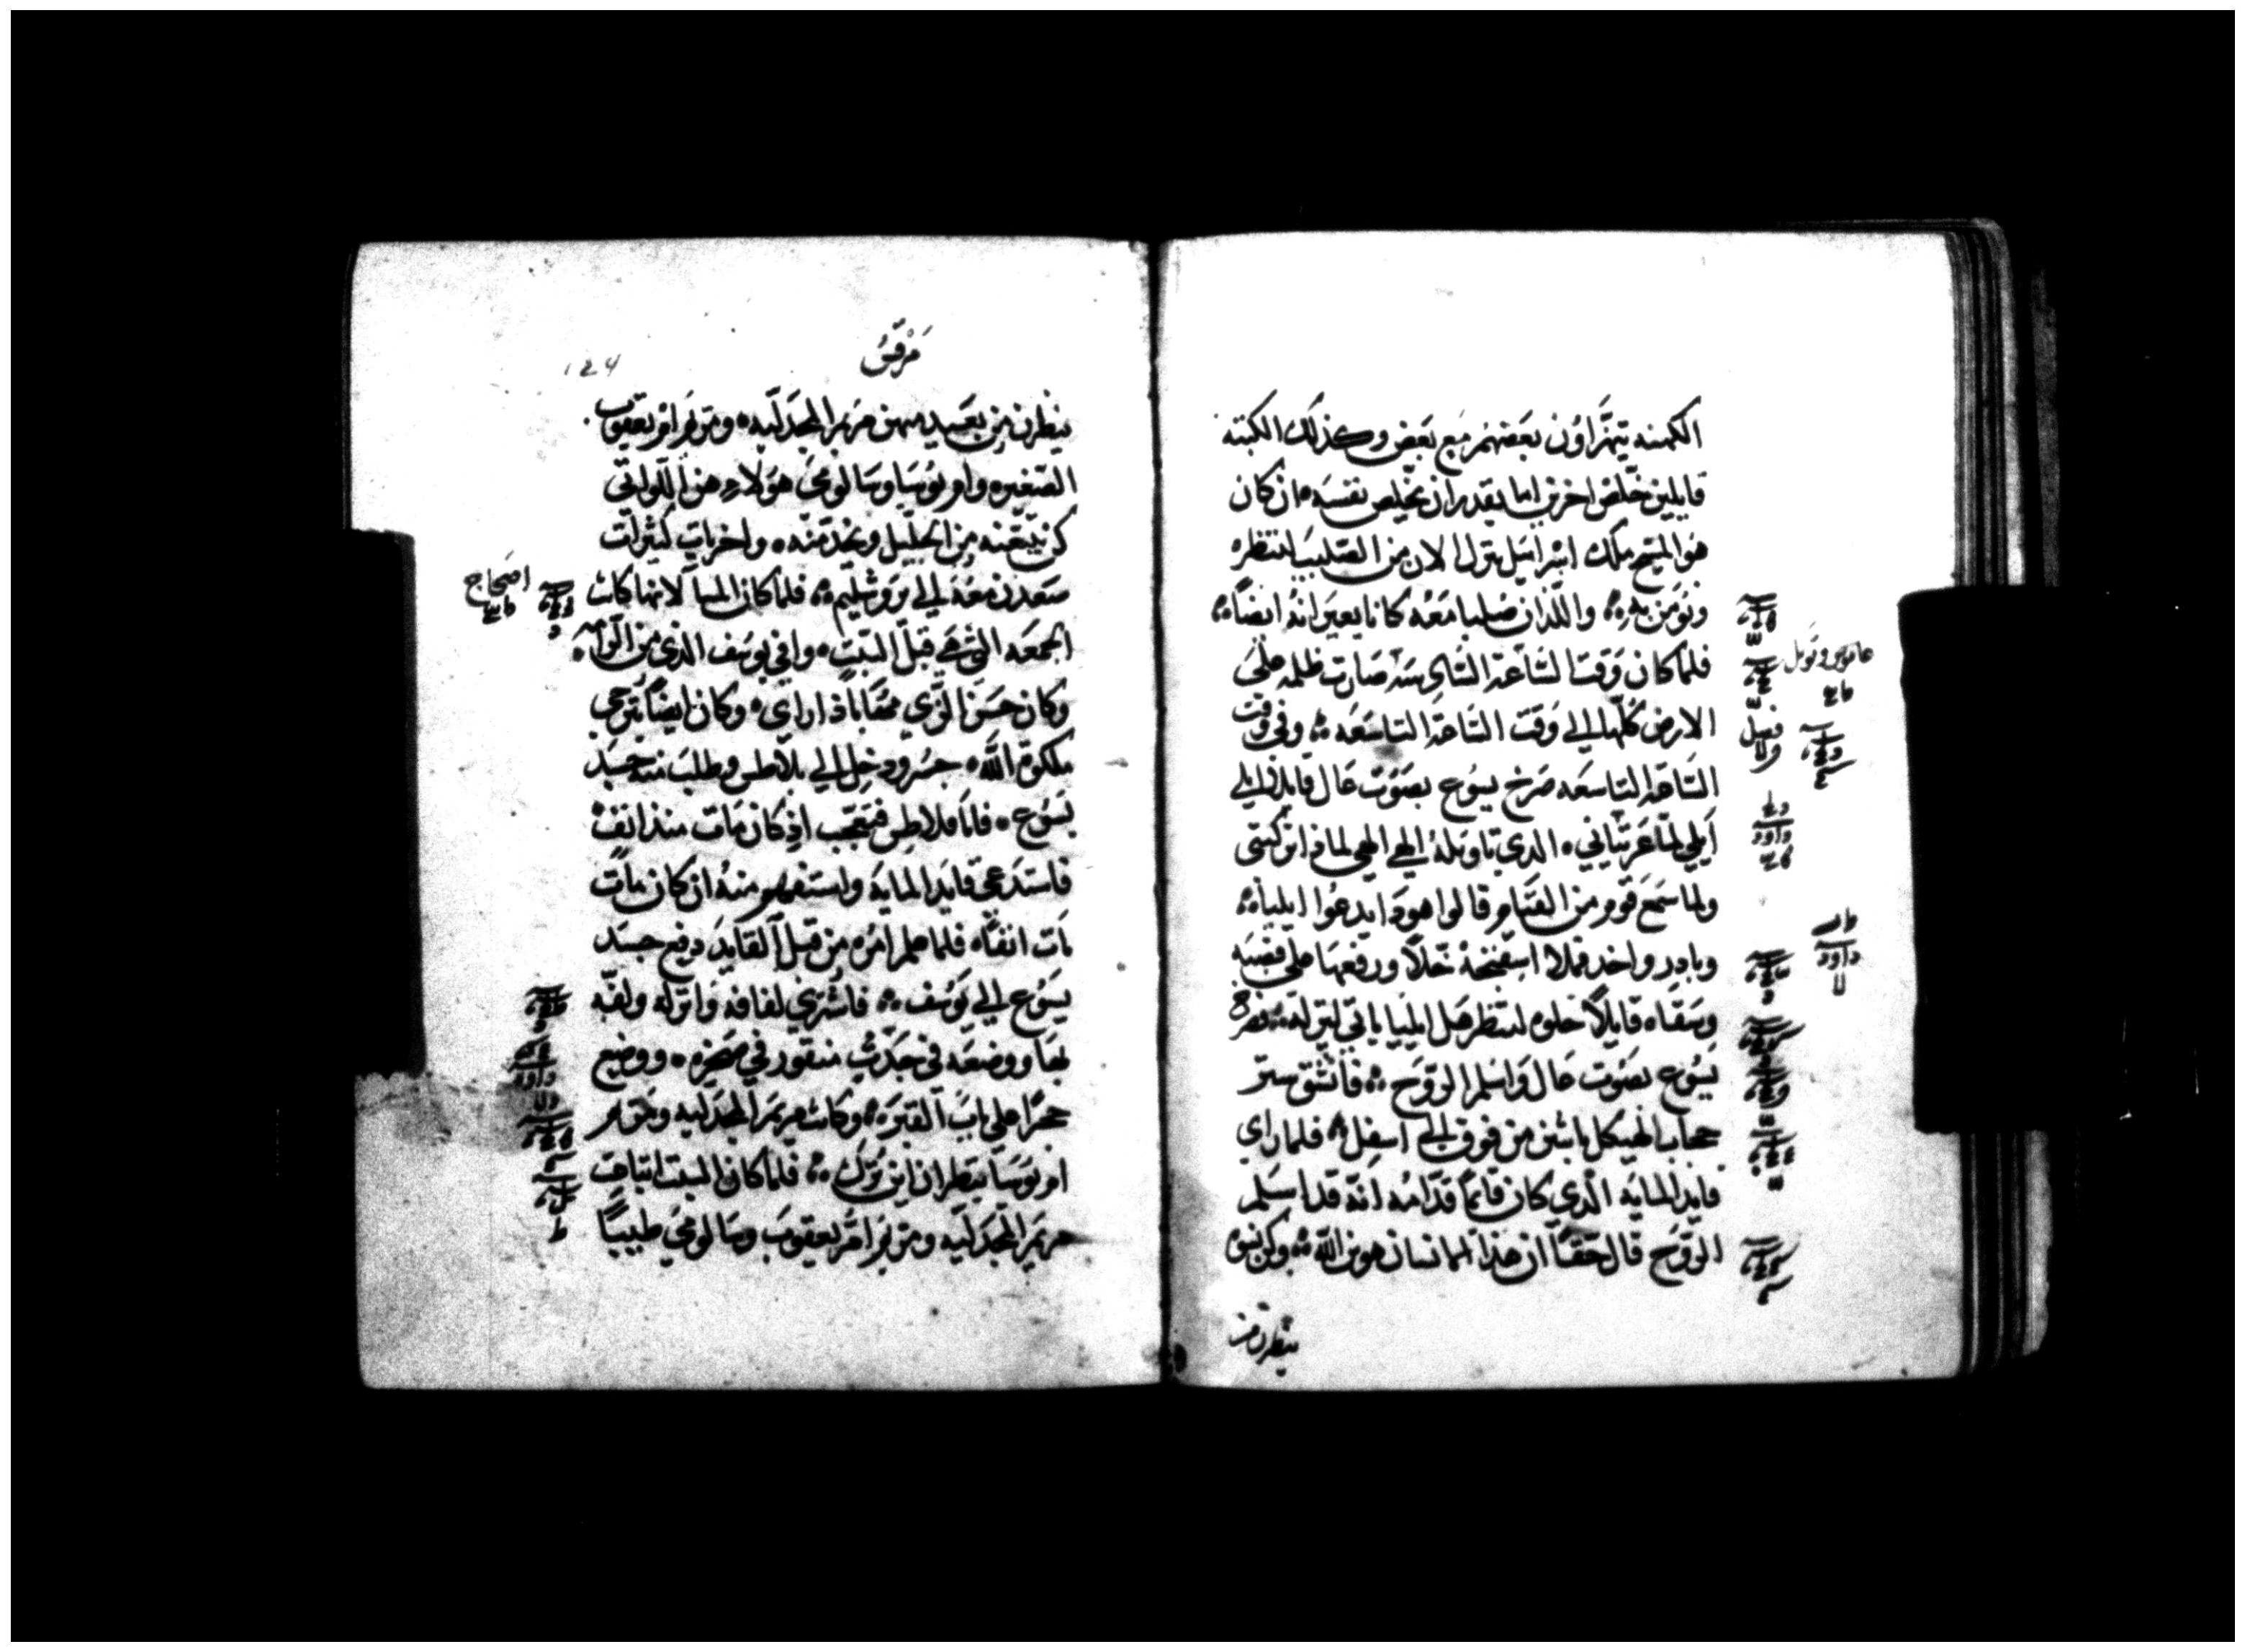 الكهنه يتهزاون بعضهم مع بعض وكذلك الكتبه
قايلين خلص اخرين اما يقدر ان يخلص نفسه ان كان
هو المسيح ملك اسراييل ينزل الان من الصليب لننظره
ونومن به واللذان صلبا معه كانا يعيرانه ايضاً
فلما كان وقت الساعة السادسه صارت ظلمه على
الارض كلها الي وقت الساعة التاسعه وفي وقت
الساعة التاسعه صرخ يسوع بصوت عال قايلا ايلي
ايلي لما عزبتاني الدي تاويله الهي الهي لماذا تركتني
ولما سمع قوم من القيام قالوا هودا يدعوا ايلياه
وبادر واحد فملا اسفنجة خلاً ورفعها على قصبه
وسقاه قايلاً خلوه لننظر هل ايليا ياتي لينزله فصرخ
يسوع بصوت عال واسلم الروح فانشق ستر
حجاب الهيكل باثنين من فوق الي اسفل فلما راي
قايد المايه الدي كان قايماً قدامه انه قد اسلم
الروح قال حقاً ان هذا الانسان هو بن الله وكن نسوه
ينظرن من
مرقس
124
ينظرن من بعيد منهن مريم المجدليه ومريم ام يعقوب
الصغير وام يوسا وسالومي هولاء هن اللواتي
كن يتبعنه من الجليل ويخدمنه واخريات كثيرات
صعدن معه الي يروشليم فلما كان المسا لانها كانت
الجمعه التي هي قبل السبت وافي يوسف الذي من الرامه
وكان حسن الزي مهاباً ذا راي وكان ايضاً يترجي
ملكوة الله جسر ودخل الي بلاطس وطلب منه جسد
يسوع فاما فلاطس فتعجب اذ كان مات منذ انفٍ
فاستدعي قايد المايه واستفهم منه ان كان مات
مات انفاً فلما علم امره من قبل القايد دفع جسد
يسوع الي يوسف فاشتري لفافه وانزله ولفه
بها ووضعه في جدث منقور في صخره ووضع
حجرًا على باب القبر وكانت مريم المجدليه ومريم
ام يوسا ينظران اين ترك فلما كان السبت ابتاعت
مريم المجدليه ومريم ام يعقوب وسالومي طيبًا
اصحاح